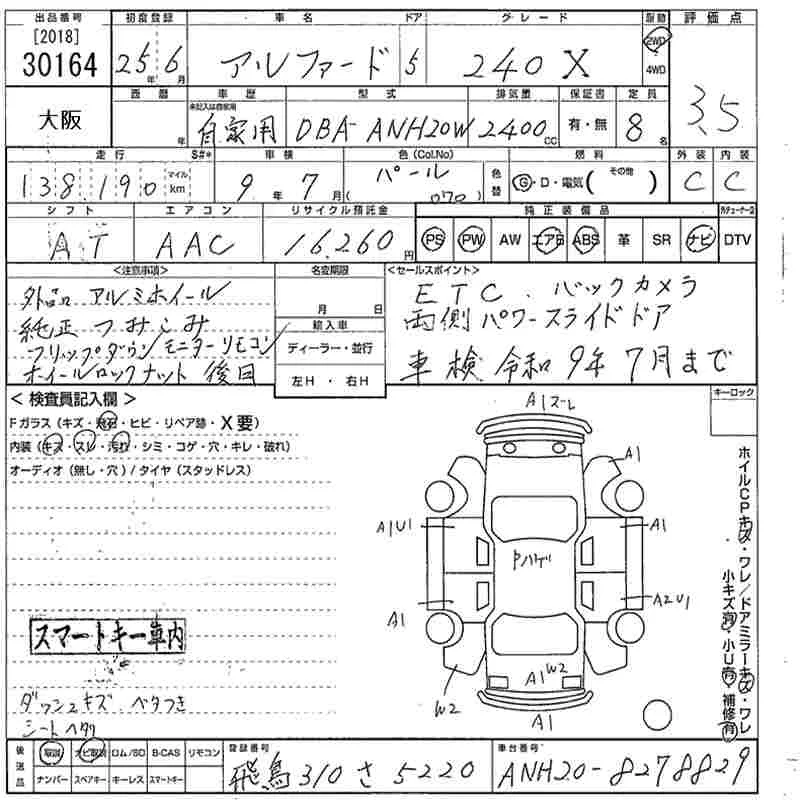 出品番号 初度登録 車名 ドア グレード 駆動 評価点
[2018]
30164 25年 6月 アルファード 5 240 X 2WD 4WD 3.5
西暦 車歴 型式 排気量 保証書 定員
未記入は自家用
大阪 年 自家用 DBA-ANH20W 2400cc 有・無 8名
走行 S#* 車検 色(Col.No) 燃料 外装 内装
138,190 マイル km 9年 7月 パール (070) 色替 G・D・電気( その他 ) C C
シフト エアコン リサイクル預託金 純正装備品
AT AAC 16,260円 PS PW AW エアB ABS 革 SR ナビ DTV
<注意事項> 名変期限 <セールスポイント>
外品アルミホイール 月 日 ETC.バックカメラ
純正つみこみ 輸入車 両側パワースライドドア
フリップダウンモニターリモコン ディーラー・並行
ホイールロックナット後日 左H・右H 車検令和9年7月まで
<検査員記入欄> キーロック
Fガラス(キズ・飛石・ヒビ・リペア跡・X要)
内装(キズ・スレ・汚れ・シミ・コゲ・穴・キレ・破れ)
オーディオ(無し・穴)/タイヤ(スタッドレス)
A1スーレ
A1
A1U1 A1
Pハゲ
A1 A2U1
A1 W2
W2
A1
ホイルCPキズ・ワレ/ドアミラーキズ・ワレ
小キズ有・小U有・補修有
スマートキー車内
ダッシュキズ ベタつき
シートヘタリ
後送品 取説 ナビ取説 ロム/SD B-CAS リモコン 登録番号 車台番号
ナンバー スペアキー キーレス スマートキー 飛鳥 310 さ 5220 ANH20-8278829